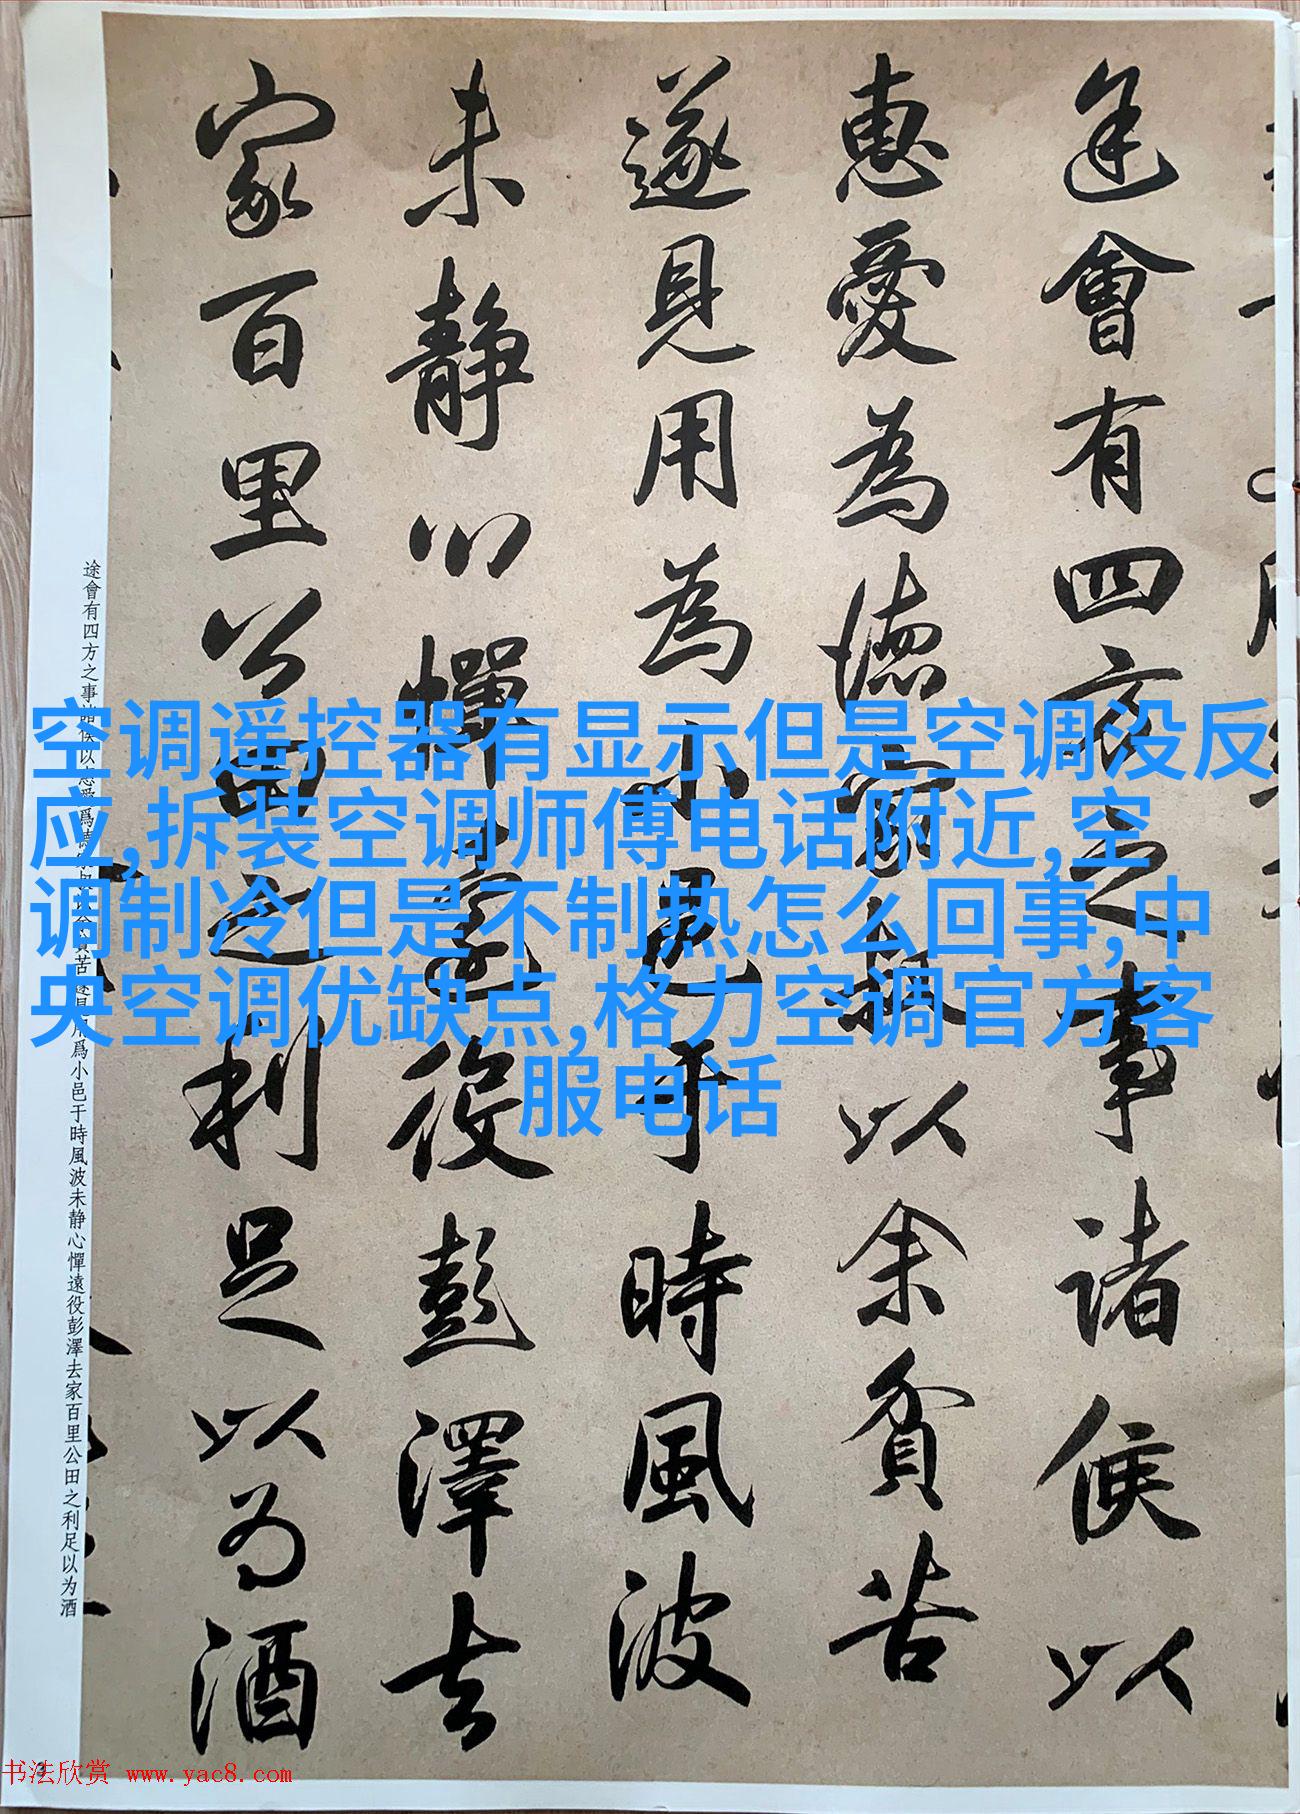 途會有四方之事諸侯以
惠愛爲德家叔以余貧苦
遂見用為小邑于時風波
未静心憚遠役彭澤去
家百里公田之利足以为酒
空调遥控器有显示但是空调没反
应,拆装空调师傅电话附近,空
调制冷但是不制热怎么回事,中
央空调优缺点,格力空调官方客
服电话
途會有四方之事諸侯以惠愛爲德家叔以余貧苦遂見用爲小邑于時風波未静心憚遠役彭澤去家百里公田之利足以为酒
3
书法欣赏 www.yac8.com